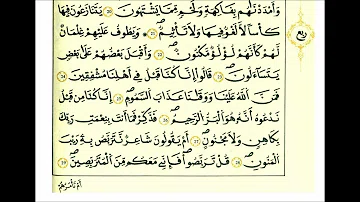 ربع
وَأَمْدَدْنَٰهُم بِفَٰكِهَةٍ وَلَحْمٍ مِّمَّا يَشْتَهُونَ ٢٠ يَتَنَٰزَعُونَ فِيهَا
كَأْسًا لَّا لَغْوَ فِيهَا وَلَا تَأْثِيمَ ٢١ وَيَطُوفُ عَلَيْهِمْ غِلْمَانٌ
لَّهُمْ كَأَنَّهُمْ لُؤْلُؤٌ مَّكْنُونٌ ٢٢ وَأَقْبَلَ بَعْضُهُمْ عَلَىٰ بَعْضٍ
يَتَسَاءَلُونَ ٢٣ قَالُوا إِنَّا كُنَّا قَبْلُ فِي أَهْلِنَا مُشْفِقِينَ ٢٤
فَمَنَّ اللَّهُ عَلَيْنَا وَوَقَىٰنَا عَذَابَ السَّمُومِ ٢٥ إِنَّا كُنَّا مِن قَبْلُ
نَدْعُوهُ أَنَّهُ هُوَ الْبَرُّ الرَّحِيمُ ٢٦ فَذَكِّرْ فَمَا أَنتَ بِنِعْمَتِ رَبِّكَ
بِكَاهِنٍ وَلَا مَجْنُونٍ ٢٧ أَمْ يَقُولُونَ شَاعِرٌ نَّتَرَبَّصُ بِهِ رَيْبَ
الْمَنُونِ ٢٨ قُلْ تَرَبَّصُوا فَإِنِّي مَعَكُم مِّنَ الْمُتَرَبِّصِينَ ٢٩
أَمْ تَأْمُرُهُمْ